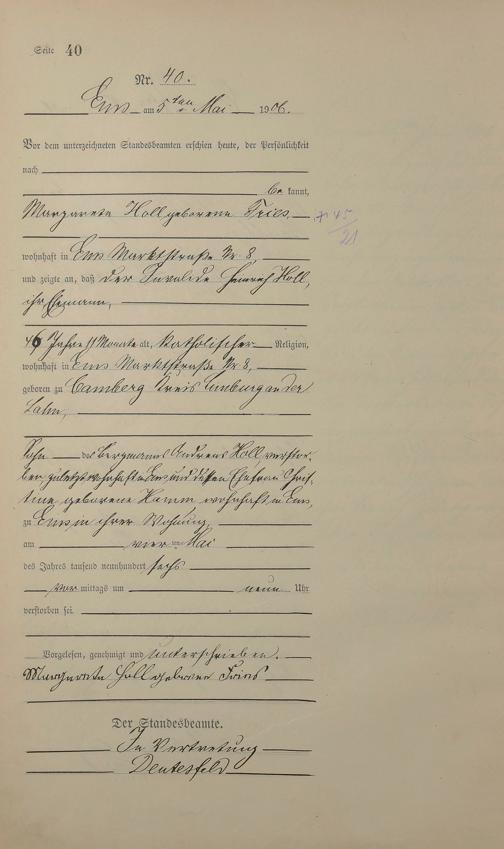 Seite 40
Nr. 40.
Ems am 5ten Mai 1906.
Vor dem unterzeichneten Standesbeamten erschien heute, der Persönlichkeit
nach
be kannt,
Margareta Holl geborene Fries + 45
21
wohnhaft in Ems Marktstraße Nr 8,
und zeigte an, daß der Invalide Heinrich Holl,
ihr Ehemann,
46 Jahre 11 Monate alt, katholischer Religion,
wohnhaft in Ems Marktstraße Nr 8,
geboren zu Camberg Kreis Limburg an der
Lahn,
Sohn des Bergmanns Andreas Holl verstor-
ben zuletzt wohnhaft in Ems und dessen Ehefrau Chris-
tine geborene Hamm wohnhaft in Ems,
zu Ems in ihrer Wohnung
am vier ten Mai
des Jahres tausend neunhundert sechs
vor mittags um neun Uhr
verstorben sei.
Vorgelesen, genehmigt und unterschrieben.
Margareta Holl geborene Fries
Der Standesbeamte.
In Vertretung